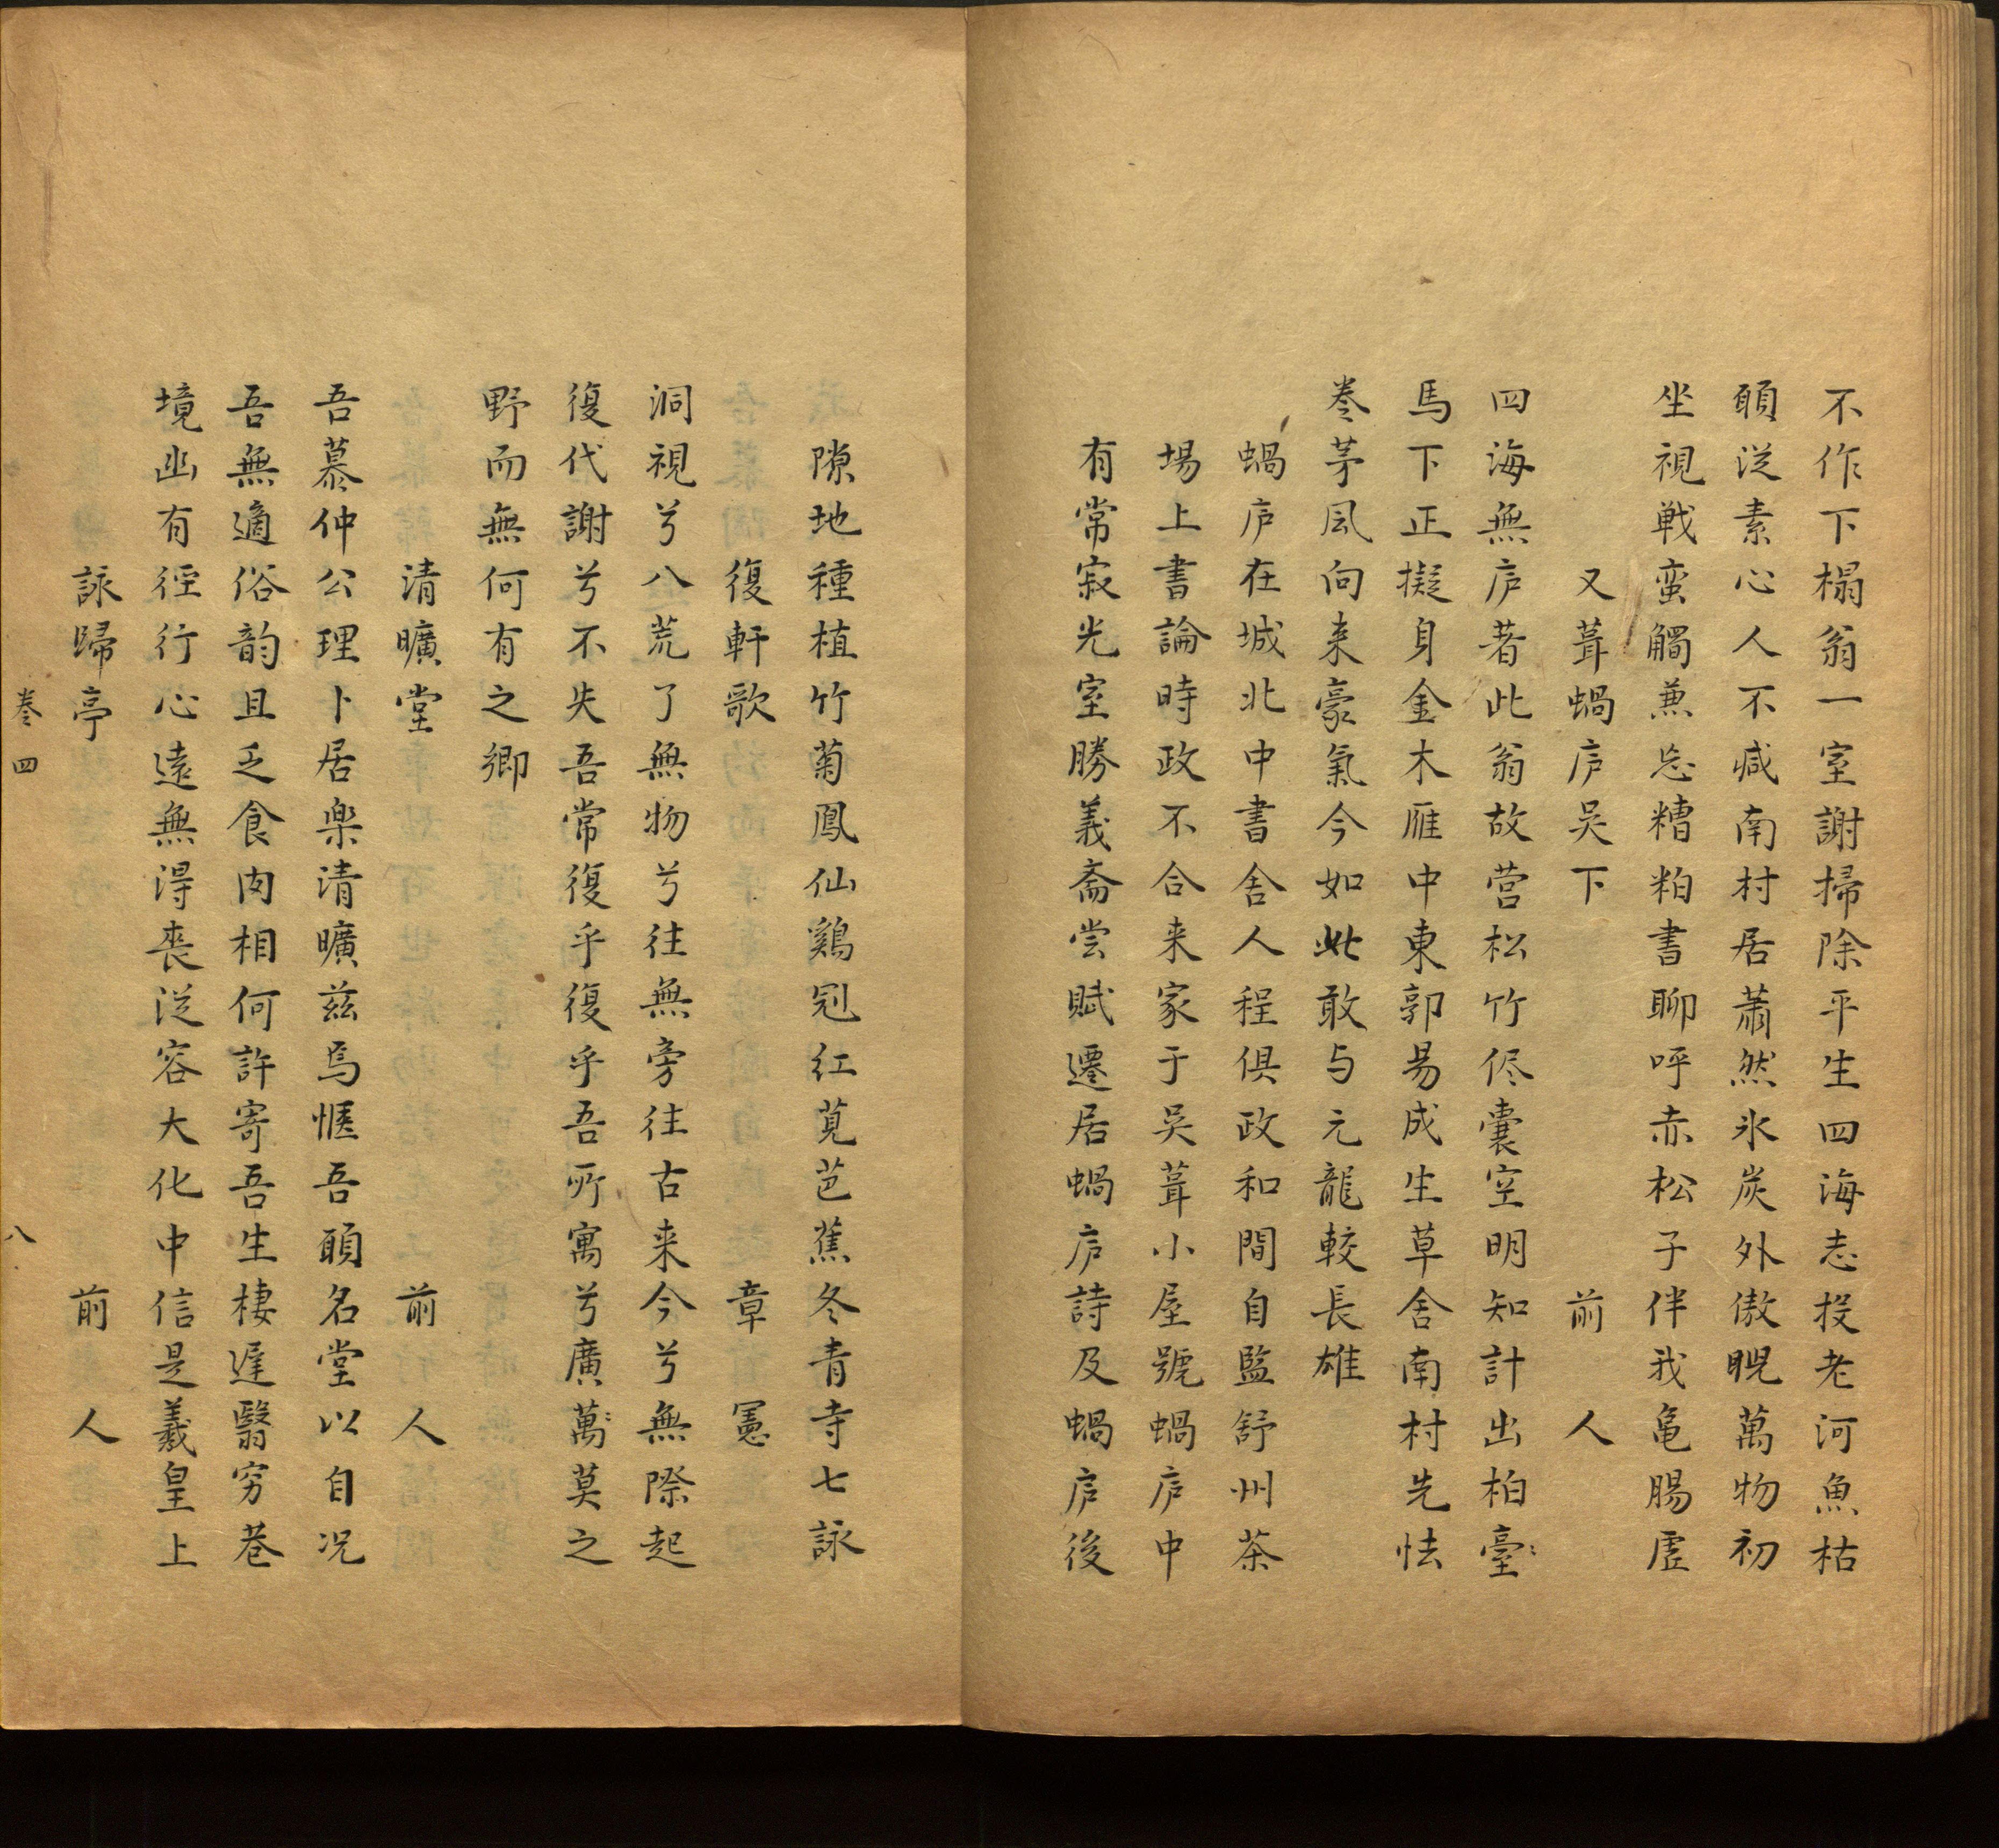 不作下榻翁一室謝掃除平生四海志投老河魚枯
頋従素心人不減南村居蕭然氷炭外傲睨萬物初
坐視戦蛮觸兼忘糟粕書聊呼赤松子伴我亀腸虛
又葺蝸庐吴下　前人
四海無庐者此翁故营松竹侭囊空明知計出柏臺
馬下正擬身金木雁中東郭易成生草舍南村先怯
巻茅風向来豪氣今如此敢与元龍較長雄
蝸庐在城北中書舍人程俱政和間自監舒州茶
場上書論時政不合来家于吴葺小屋號蝸庐中
有常寂光室勝義斋尝賦遷居蝸庐詩及蝸庐後
隙地種植竹菊鳳仙鷄冠紅莧芭蕉冬青寺七詠
復軒歌　章憲
洞視兮八荒了無物兮往無旁往古来今兮無際起
復代謝兮不失吾常復乎復乎吾所寓兮廣萬莫之
野而無何有之郷
清曠堂　前人
吾慕仲公理卜居樂清曠兹焉惬吾頋名堂以自况
吾無適俗韵且乏食肉相何許寄吾生棲遲翳穷巷
境幽有徑行心遠無得丧従容大化中信是羲皇上
詠歸亭　前人
巻四　八